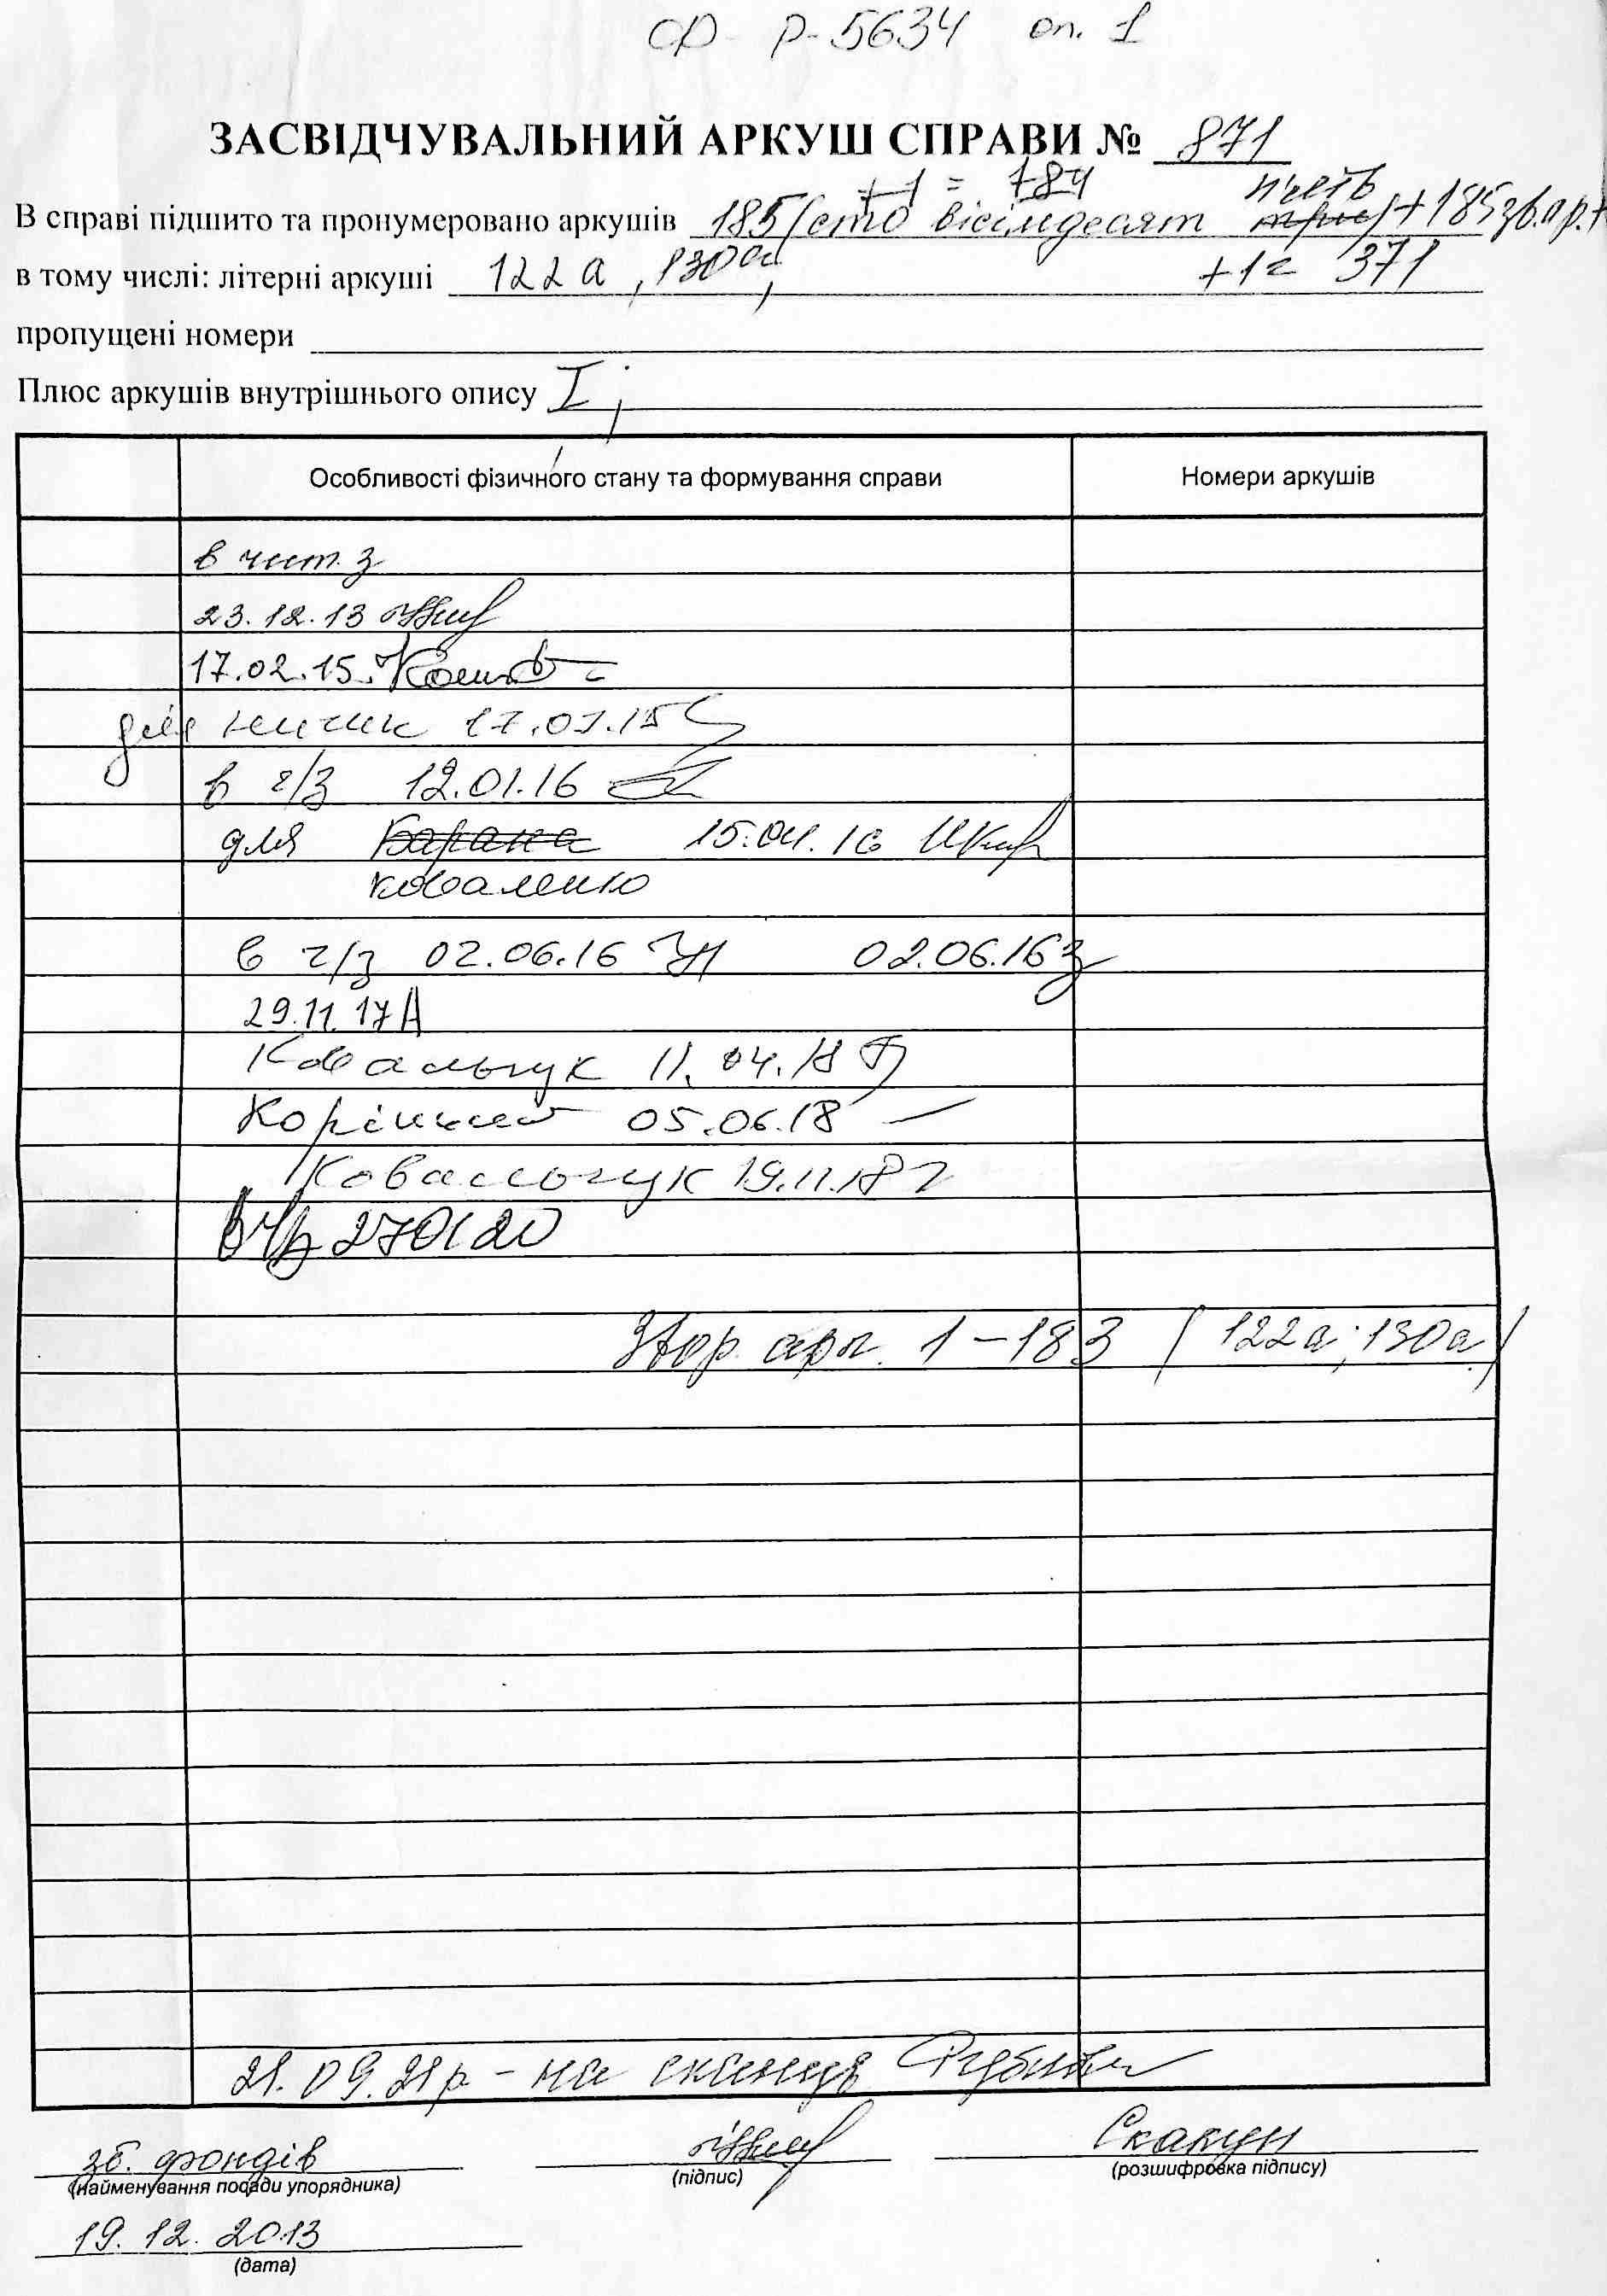 Ф Р-5634 оп. 1
ЗАСВІДЧУВАЛЬНИЙ АРКУШ СПРАВИ № 871
+1 = 184
В справі підшито та пронумеровано аркушів 185 (сто вісімдесят п'ять) + 185 зв. ар. +
в тому числі: літерні аркуші 122а, 130а, +1= 371
пропущені номери
Плюс аркушів внутрішнього опису I;
Особливості фізичного стану та формування справи Номери аркушів
в чит. з
23.12.13
17.02.15.
для 17.07.15
в ч/з 12.01.16
для Барана 15.04.16
Коваленко
в ч/з 02.06.16 02.06.16
29.11.17
Ковальчук 11.04.18
05.06.18
Ковальчук 19.11.18
В ч/з 270120
арк. 1-183 (122а; 130а)
21.09.21р - на
зб. фондів Скакун
(найменування посади упорядника) (підпис) (розшифровка підпису)
19.12.2013
(дата)